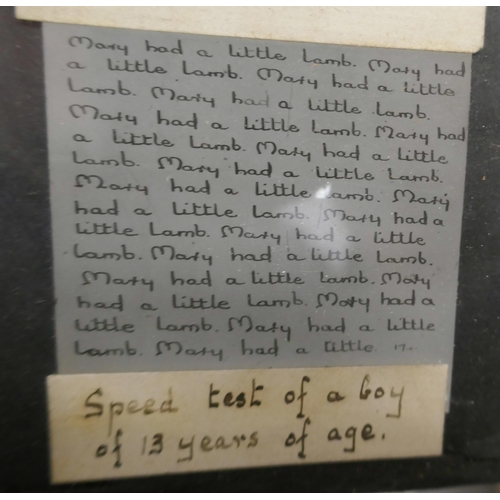 Mary had a little Lamb. Mary had
a little Lamb. Mary had a little
Lamb. Mary had a little Lamb.
Mary had a little Lamb. Mary had
a little Lamb. Mary had a little
Lamb. Mary had a little Lamb.
Mary had a little Lamb. Mary
had a little Lamb. Mary had a
little Lamb. Mary had a little
Lamb. Mary had a little Lamb.
Mary had a little Lamb. Mary
had a little Lamb. Mary had a
little Lamb. Mary had a little
Lamb. Mary had a little 17.
Speed test of a boy
of 13 years of age.